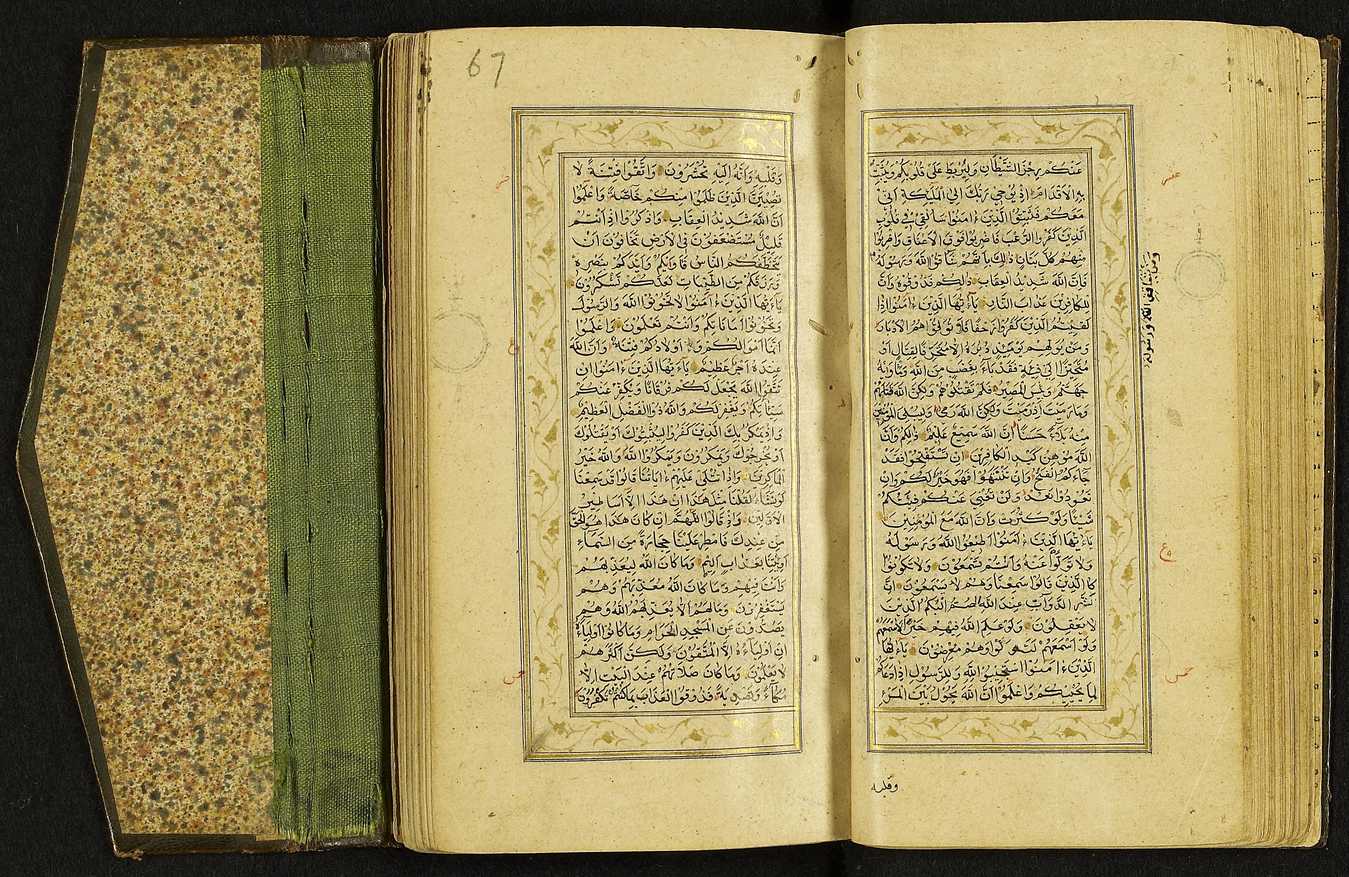 عَنكُمْ رِجْزَ الشَّيْطَانِ وَلِيَرْبِطَ عَلَى قُلُوبِكُمْ وَيُثَبِّتَ
بِهِ الْاَقْدَامَ اِذْ يُوحِي رَبُّكَ اِلَى الْمَلٰئِكَةِ اَنِّي
مَعَكُمْ فَثَبِّتُوا الَّذِينَ ءَامَنُوا سَاُلْقِي فِي قُلُوبِ
الَّذِينَ كَفَرُوا الرُّعْبَ فَاضْرِبُوا فَوْقَ الْاَعْنَاقِ وَاضْرِبُوا
مِنْهُمْ كُلَّ بَنَانٍ ذٰلِكَ بِاَنَّهُمْ شَاقُّوا اللّٰهَ وَرَسُولَهُ
فَاِنَّ اللّٰهَ شَدِيدُ الْعِقَابِ ذٰلِكُمْ فَذُوقُوهُ وَاَنَّ
لِلْكَافِرِينَ عَذَابَ النَّارِ يَاءَيُّهَا الَّذِينَ ءَامَنُوا اِذَا
لَقِيتُمُ الَّذِينَ كَفَرُوا زَحْفًا فَلَا تُوَلُّوهُمُ الْاَدْبَارَ
وَمَنْ يُوَلِّهِمْ يَوْمَئِذٍ دُبُرَهُ اِلَّا مُتَحَرِّفًا لِقِتَالٍ اَوْ
مُتَحَيِّزًا اِلٰى فِئَةٍ فَقَدْ بَاءَ بِغَضَبٍ مِنَ اللّٰهِ وَمَاْوٰيهُ
جَهَنَّمُ وَبِئْسَ الْمَصِيرُ فَلَمْ تَقْتُلُوهُمْ وَلٰكِنَّ اللّٰهَ قَتَلَهُمْ
وَمَا رَمَيْتَ اِذْ رَمَيْتَ وَلٰكِنَّ اللّٰهَ رَمٰى وَلِيُبْلِيَ الْمُؤْمِنِينَ
مِنْهُ بَلَاءً حَسَنًا اِنَّ اللّٰهَ سَمِيعٌ عَلِيمٌ ذٰلِكُمْ وَاَنَّ
اللّٰهَ مُوهِنُ كَيْدِ الْكَافِرِينَ اِنْ تَسْتَفْتِحُوا فَقَدْ
جَاءَكُمُ الْفَتْحُ وَاِنْ تَنْتَهُوا فَهُوَ خَيْرٌ لَكُمْ وَاِنْ
تَعُودُوا نَعُدْ وَلَنْ تُغْنِيَ عَنْكُمْ فِئَتُكُمْ
شَيْئًا وَلَوْ كَثُرَتْ وَاَنَّ اللّٰهَ مَعَ الْمُؤْمِنِينَ
يَاءَيُّهَا الَّذِينَ ءَامَنُوا اَطِيعُوا اللّٰهَ وَرَسُولَهُ
وَلَا تَوَلَّوْا عَنْهُ وَاَنْتُمْ تَسْمَعُونَ وَلَا تَكُونُوا
كَالَّذِينَ قَالُوا سَمِعْنَا وَهُمْ لَا يَسْمَعُونَ اِنَّ
شَرَّ الدَّوَابِّ عِنْدَ اللّٰهِ الصُّمُّ الْبُكْمُ الَّذِينَ
لَا يَعْقِلُونَ وَلَوْ عَلِمَ اللّٰهُ فِيهِمْ خَيْرًا لَاَسْمَعَهُمْ
وَلَوْ اَسْمَعَهُمْ لَتَوَلَّوْا وَهُمْ مُعْرِضُونَ يَاءَيُّهَا
الَّذِينَ ءَامَنُوا اسْتَجِيبُوا لِلّٰهِ وَلِلرَّسُولِ اِذَا دَعَاكُمْ
لِمَا يُحْيِيكُمْ وَاعْلَمُوا اَنَّ اللّٰهَ يَحُولُ بَيْنَ الْمَرْءِ
وقلبه
عشر
ومن يشاقق الله ورسوله
ع
خمس
67
وَقَلْبِهِ وَاَنَّهُ اِلَيْهِ تُحْشَرُونَ وَاتَّقُوا فِتْنَةً لَا
تُصِيبَنَّ الَّذِينَ ظَلَمُوا مِنْكُمْ خَاصَّةً وَاعْلَمُوا
اَنَّ اللّٰهَ شَدِيدُ الْعِقَابِ وَاذْكُرُوا اِذْ اَنْتُمْ
قَلِيلٌ مُسْتَضْعَفُونَ فِي الْاَرْضِ تَخَافُونَ اَنْ
يَتَخَطَّفَكُمُ النَّاسُ فَاٰوٰيكُمْ وَاَيَّدَكُمْ بِنَصْرِهِ
وَرَزَقَكُمْ مِنَ الطَّيِّبَاتِ لَعَلَّكُمْ تَشْكُرُونَ
يَاءَيُّهَا الَّذِينَ ءَامَنُوا لَا تَخُونُوا اللّٰهَ وَالرَّسُولَ
وَتَخُونُوا اَمَانَاتِكُمْ وَاَنْتُمْ تَعْلَمُونَ وَاعْلَمُوا
اَنَّمَا اَمْوَالُكُمْ وَاَوْلَادُكُمْ فِتْنَةٌ وَاَنَّ اللّٰهَ
عِنْدَهُ اَجْرٌ عَظِيمٌ يَاءَيُّهَا الَّذِينَ ءَامَنُوا اِنْ
تَتَّقُوا اللّٰهَ يَجْعَلْ لَكُمْ فُرْقَانًا وَيُكَفِّرْ عَنْكُمْ
سَيِّئَاتِكُمْ وَيَغْفِرْ لَكُمْ وَاللّٰهُ ذُو الْفَضْلِ الْعَظِيمِ
وَاِذْ يَمْكُرُ بِكَ الَّذِينَ كَفَرُوا لِيُثْبِتُوكَ اَوْ يَقْتُلُوكَ
اَوْ يُخْرِجُوكَ وَيَمْكُرُونَ وَيَمْكُرُ اللّٰهُ وَاللّٰهُ خَيْرُ
الْمَاكِرِينَ وَاِذَا تُتْلٰى عَلَيْهِمْ ءَايَاتُنَا قَالُوا قَدْ سَمِعْنَا
لَوْ نَشَاءُ لَقُلْنَا مِثْلَ هٰذَا اِنْ هٰذَا اِلَّا اَسَاطِيرُ
الْاَوَّلِينَ وَاِذْ قَالُوا اللّٰهُمَّ اِنْ كَانَ هٰذَا هُوَ الْحَقَّ
مِنْ عِنْدِكَ فَاَمْطِرْ عَلَيْنَا حِجَارَةً مِنَ السَّمَاءِ
اَوِ ائْتِنَا بِعَذَابٍ اَلِيمٍ وَمَا كَانَ اللّٰهُ لِيُعَذِّبَهُمْ
وَاَنْتَ فِيهِمْ وَمَا كَانَ اللّٰهُ مُعَذِّبَهُمْ وَهُمْ
يَسْتَغْفِرُونَ وَمَا لَهُمْ اَلَّا يُعَذِّبَهُمُ اللّٰهُ وَهُمْ
يَصُدُّونَ عَنِ الْمَسْجِدِ الْحَرَامِ وَمَا كَانُوا اَوْلِيَاءَهُ
اِنْ اَوْلِيَاءُهُ اِلَّا الْمُتَّقُونَ وَلٰكِنَّ اَكْثَرَهُمْ
لَا يَعْلَمُونَ وَمَا كَانَ صَلَاتُهُمْ عِنْدَ الْبَيْتِ اِلَّا
مُكَاءً وَتَصْدِيَةً فَذُوقُوا الْعَذَابَ بِمَا كُنْتُمْ تَكْفُرُونَ
ع
خمس